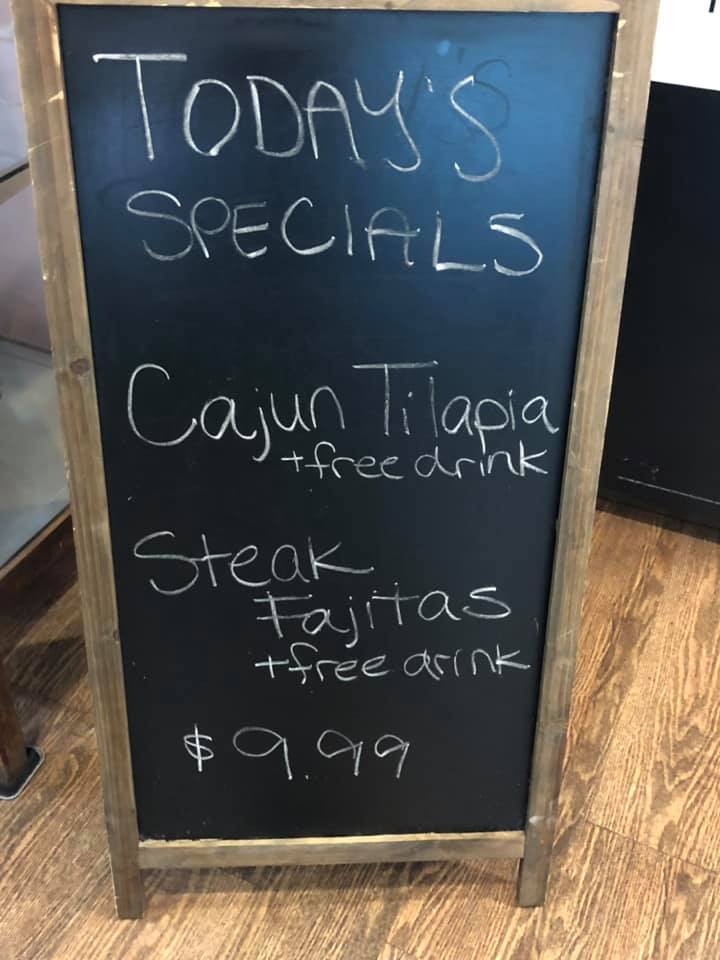 TODAY'S
SPECIALS
Cajun Tilapia
+free drink
Steak
Fajitas
+free drink
$9.99